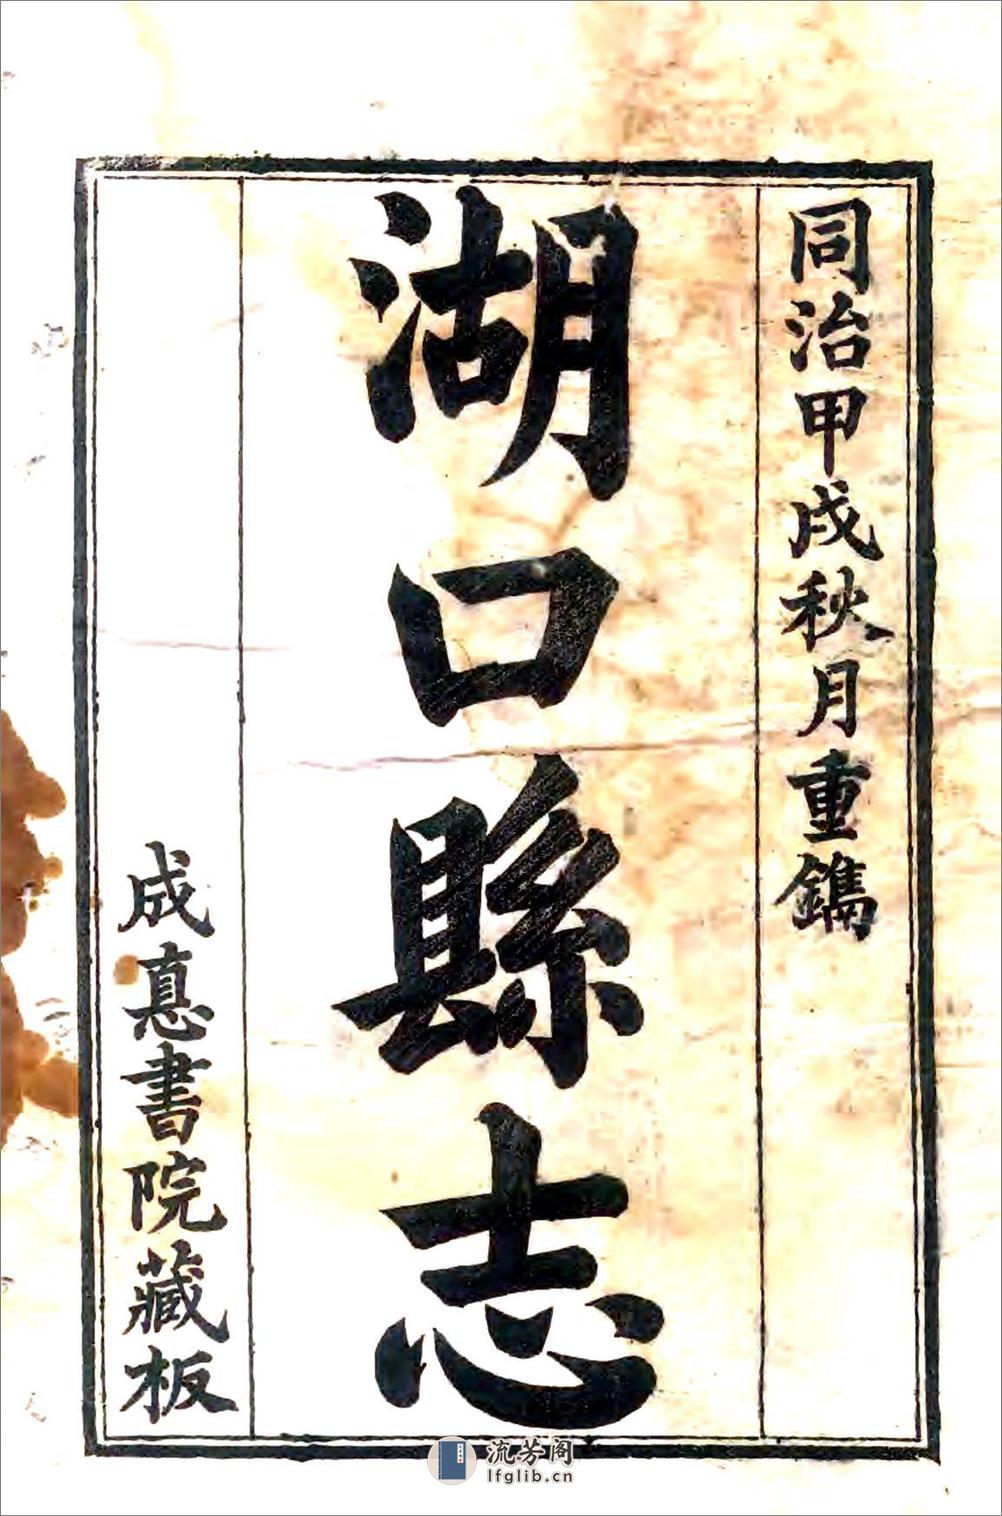 同治甲戌秋月重鐫
湖口縣志
成悳書院藏板
流芳阁
lfglib.cn